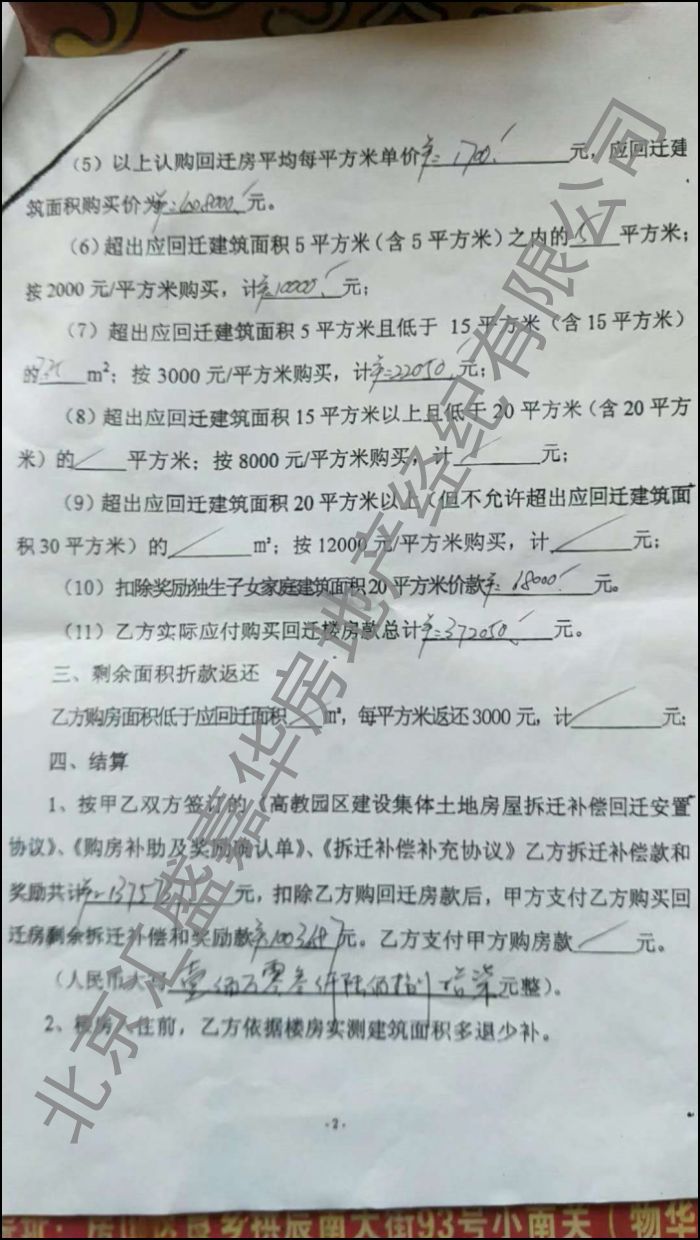 （5）以上认购回迁房平均每平方米单价 1700 元，应回迁建
筑面积购买价为 408000 元。
（6）超出应回迁建筑面积5平方米（含5平方米）之内的 5 平方米；
按2000元/平方米购买，计 10000 元；
（7）超出应回迁建筑面积5平方米且低于 15平方米（含15平方米）
的 m²；按3000元/平方米购买，计 22050 元；
（8）超出应回迁建筑面积15平方米以上且低于20平方米（含20平方
米）的 平方米；按8000元/平方米购买，计 元；
（9）超出应回迁建筑面积20平方米以上（但不允许超出应回迁建筑面
积30平方米）的 m²；按12000元/平方米购买，计 元；
（10）扣除奖励独生子女家庭建筑面积20平方米价款 68000 元。
（11）乙方实际应付购买回迁楼房款总计 372050 元。
三、剩余面积折款返还
乙方购房面积低于应回迁面积 m²，每平方米返还3000元，计 元；
四、结算
1、按甲乙双方签订的《高教园区建设集体土地房屋拆迁补偿回迁安置
协议》、《购房补助及奖励确认单》、《拆迁补偿补充协议》乙方拆迁补偿款和
奖励共计 元，扣除乙方购回迁房款后，甲方支付乙方购买回
迁房剩余拆迁补偿和奖励款 元。乙方支付甲方购房款 元。
（人民币大写 壹佰万零叁仟陆佰 拾柒元整）。
2、楼房入住前，乙方依据楼房实测建筑面积多退少补。
-2-
北京汇盛嘉华房地产经纪有限公司
良乡拱辰南大街93号小南关（物华